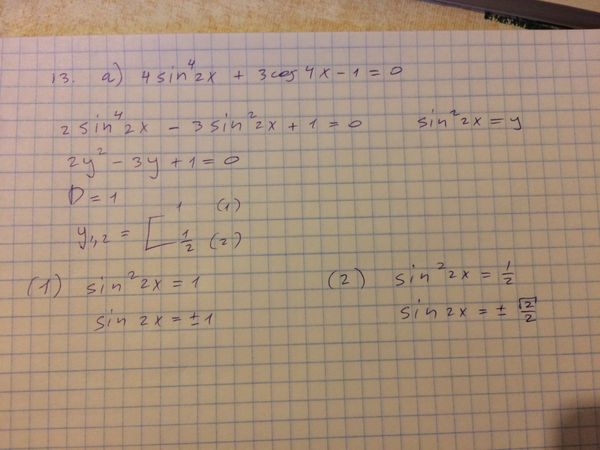 13. a) 4 sin⁴2x + 3cos 4x - 1 = 0
2 sin⁴2x - 3 sin²2x + 1 = 0 sin²2x = y
2y² - 3y + 1 = 0
D = 1
y₁,₂ = [ 1 (1)
1/2 (2)
(1) sin²2x = 1
sin 2x = ± 1
(2) sin²2x = 1/2
sin 2x = ± √2/2